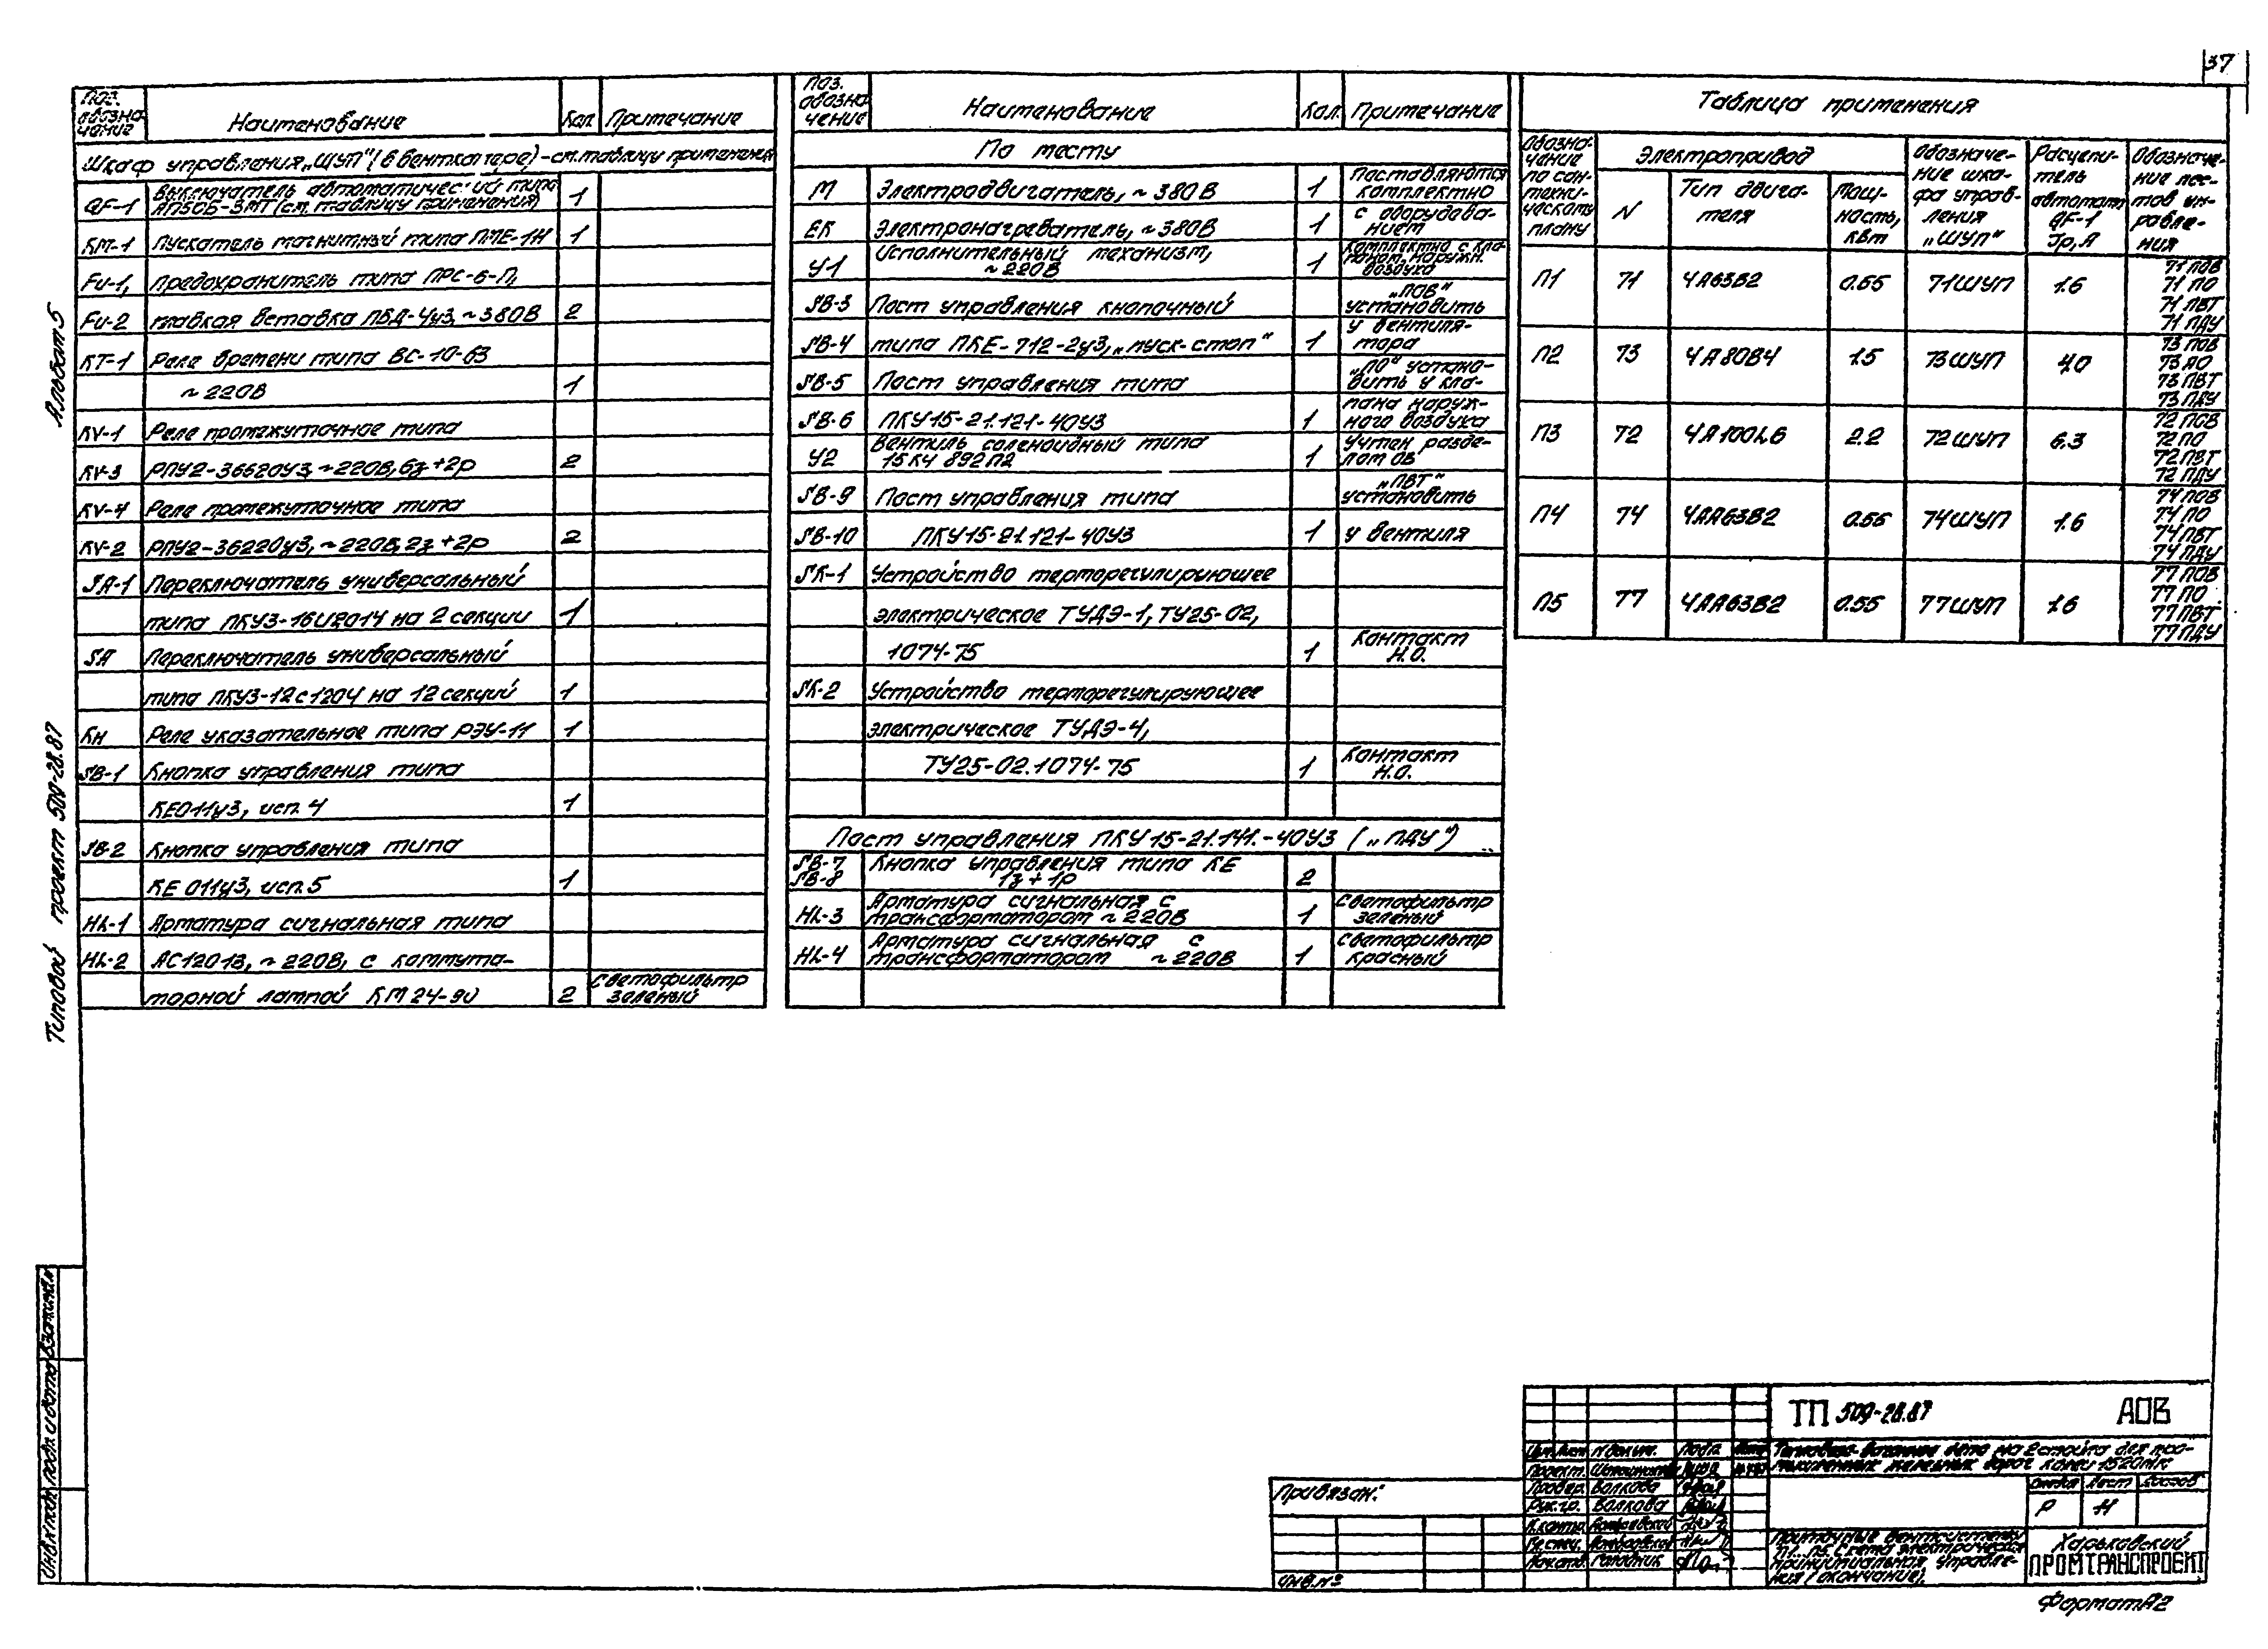 37
Поз. обозна-чение Наименование Кол Примечание
Шкаф управления „ШУП" (в венткамере) - см. таблицу применения
QF-1 Выключатель автоматический типа АП50Б-3МТ (см. таблицу применения) 1
КМ-1 Пускатель магнитный типа ПМЕ-1Н 1
FU-1, Предохранитель типа ПРС-6-П,
FU-2 плавкая вставка ПВД-4У3, ~380В 2
КТ-1 Реле времени типа ВС-10-63
~220В 1
KV-1 Реле промежуточное типа
KV-3 РПУ2-36620У3, ~220В, 6з+2р 2
KV-4 Реле промежуточное типа
KV-2 РПУ2-36220У3, ~220В, 2з+2р 2
SA-1 Переключатель универсальный
типа ПКУ3-16И2014 на 2 секции 1
SA Переключатель универсальный
типа ПКУ3-12с1204 на 12 секций 1
КН Реле указательное типа РЭУ-11 1
SB-1 Кнопка управления типа
КЕ011У3, исп. 4 1
SB-2 Кнопка управления типа
КЕ 011У3, исп. 5 1
HL-1 Арматура сигнальная типа
HL-2 АС12013, ~220В, с коммута-
торной лампой КМ 24-90 2 Светофильтр зеленый
Поз. обозна чение Наименование Кол. Примечание
По месту
М Электродвигатель, ~380В 1 Поставляются комплектно
ЕК Электронагреватель, ~380В 1 с оборудова-нием
У1 Исполнительный механизм, ~220В 1 Комплектно с кла-паном наружн. воздуха
SB-3 Пост управления кнопочный „ПОВ" установить
SB-4 типа ПКЕ-712-2У3, „пуск-стоп" 1 у вентиля-тора
SB-5 Пост управления типа „ПО" устано-вить у кла-
SB-6 ПКУ15-21.121-40У3 1 пана наруж-ного воздуха
У2 Вентиль соленоидный типа 15кч 892П2 1 Учтен разде-лом ОВ
SB-9 Пост управления типа „ПВТ" установить
SB-10 ПКУ15-21.121-40У3 1 у вентиля
SK-1 Устройство терморегулирующее
электрическое ТУДЭ-1, ТУ25-02,
1074-75 1 Контакт Н.О.
SK-2 Устройство терморегулирующее
электрическое ТУДЭ-4,
ТУ25-02.1074-75 1 Контакт Н.О.
Пост управления ПКУ15-21.141.-40У3 („ПДУ")
SB-7 SB-8 Кнопка управления типа КЕ 1з+1р 2
HL-3 Арматура сигнальная с трансформатором ~220В 1 Светофильтр зеленый
HL-4 Арматура сигнальная с трансформатором ~220В 1 Светофильтр красный
Таблица применения
Обозна-чение по сан-техни-ческому плану
Электропривод
N
Тип двига-теля
Мощ-ность, кВт
Обозначе-ние шка-фа управ-ления „ШУП"
Расцепи-тель автомат. QF-1 Iр, А
Обозначе-ние пос-тов уп-равле-ния
П1 71 4А63В2 0.55 71ШУП 1.6 71 ПОВ 71 ПО 71 ПВТ 71 ПДУ
П2 73 4А80В4 1.5 73ШУП 4,0 73 ПОВ 73 ПО 73 ПВТ 73 ПДУ
П3 72 4А100L6 2.2 72ШУП 6.3 72 ПОВ 72 ПО 72 ПВТ 72 ПДУ
П4 74 4АА63В2 0.55 74ШУП 1.6 74 ПОВ 74 ПО 74 ПВТ 74 ПДУ
П5 77 4АА63В2 0.55 77ШУП 1.6 77 ПОВ 77 ПО 77 ПВТ 77 ПДУ
Альбом 5
Типовой проект 509-28.87
Инв.№ подл. Подп. и дата Взам.инв.№
Привязан:
Инв.№
ТП 509-28.87 АОВ
Изм. Лист N докум. Подп. Дата
Тепловозо-вагонное депо на 2 стойла для про-
мышленных железных дорог колеи 1520мм
Проект.
Провер. Волкова
Рук.гр. Волкова
Н.контр.
Гл.спец.
Нач.отд. Гальдник
Стадия Лист Листов
Р Н
Приточные вентсистемы
П1...П5. Схема электрическая
принципиальная управле-
ния (окончание).
Харьковский
ПРОМТРАНСПРОЕКТ
Формат А2